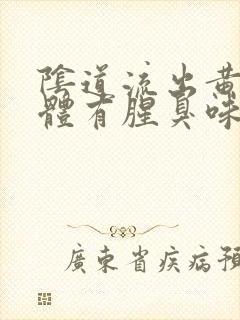 陰道流出黄
體有腥臭味
廣東省疾病預